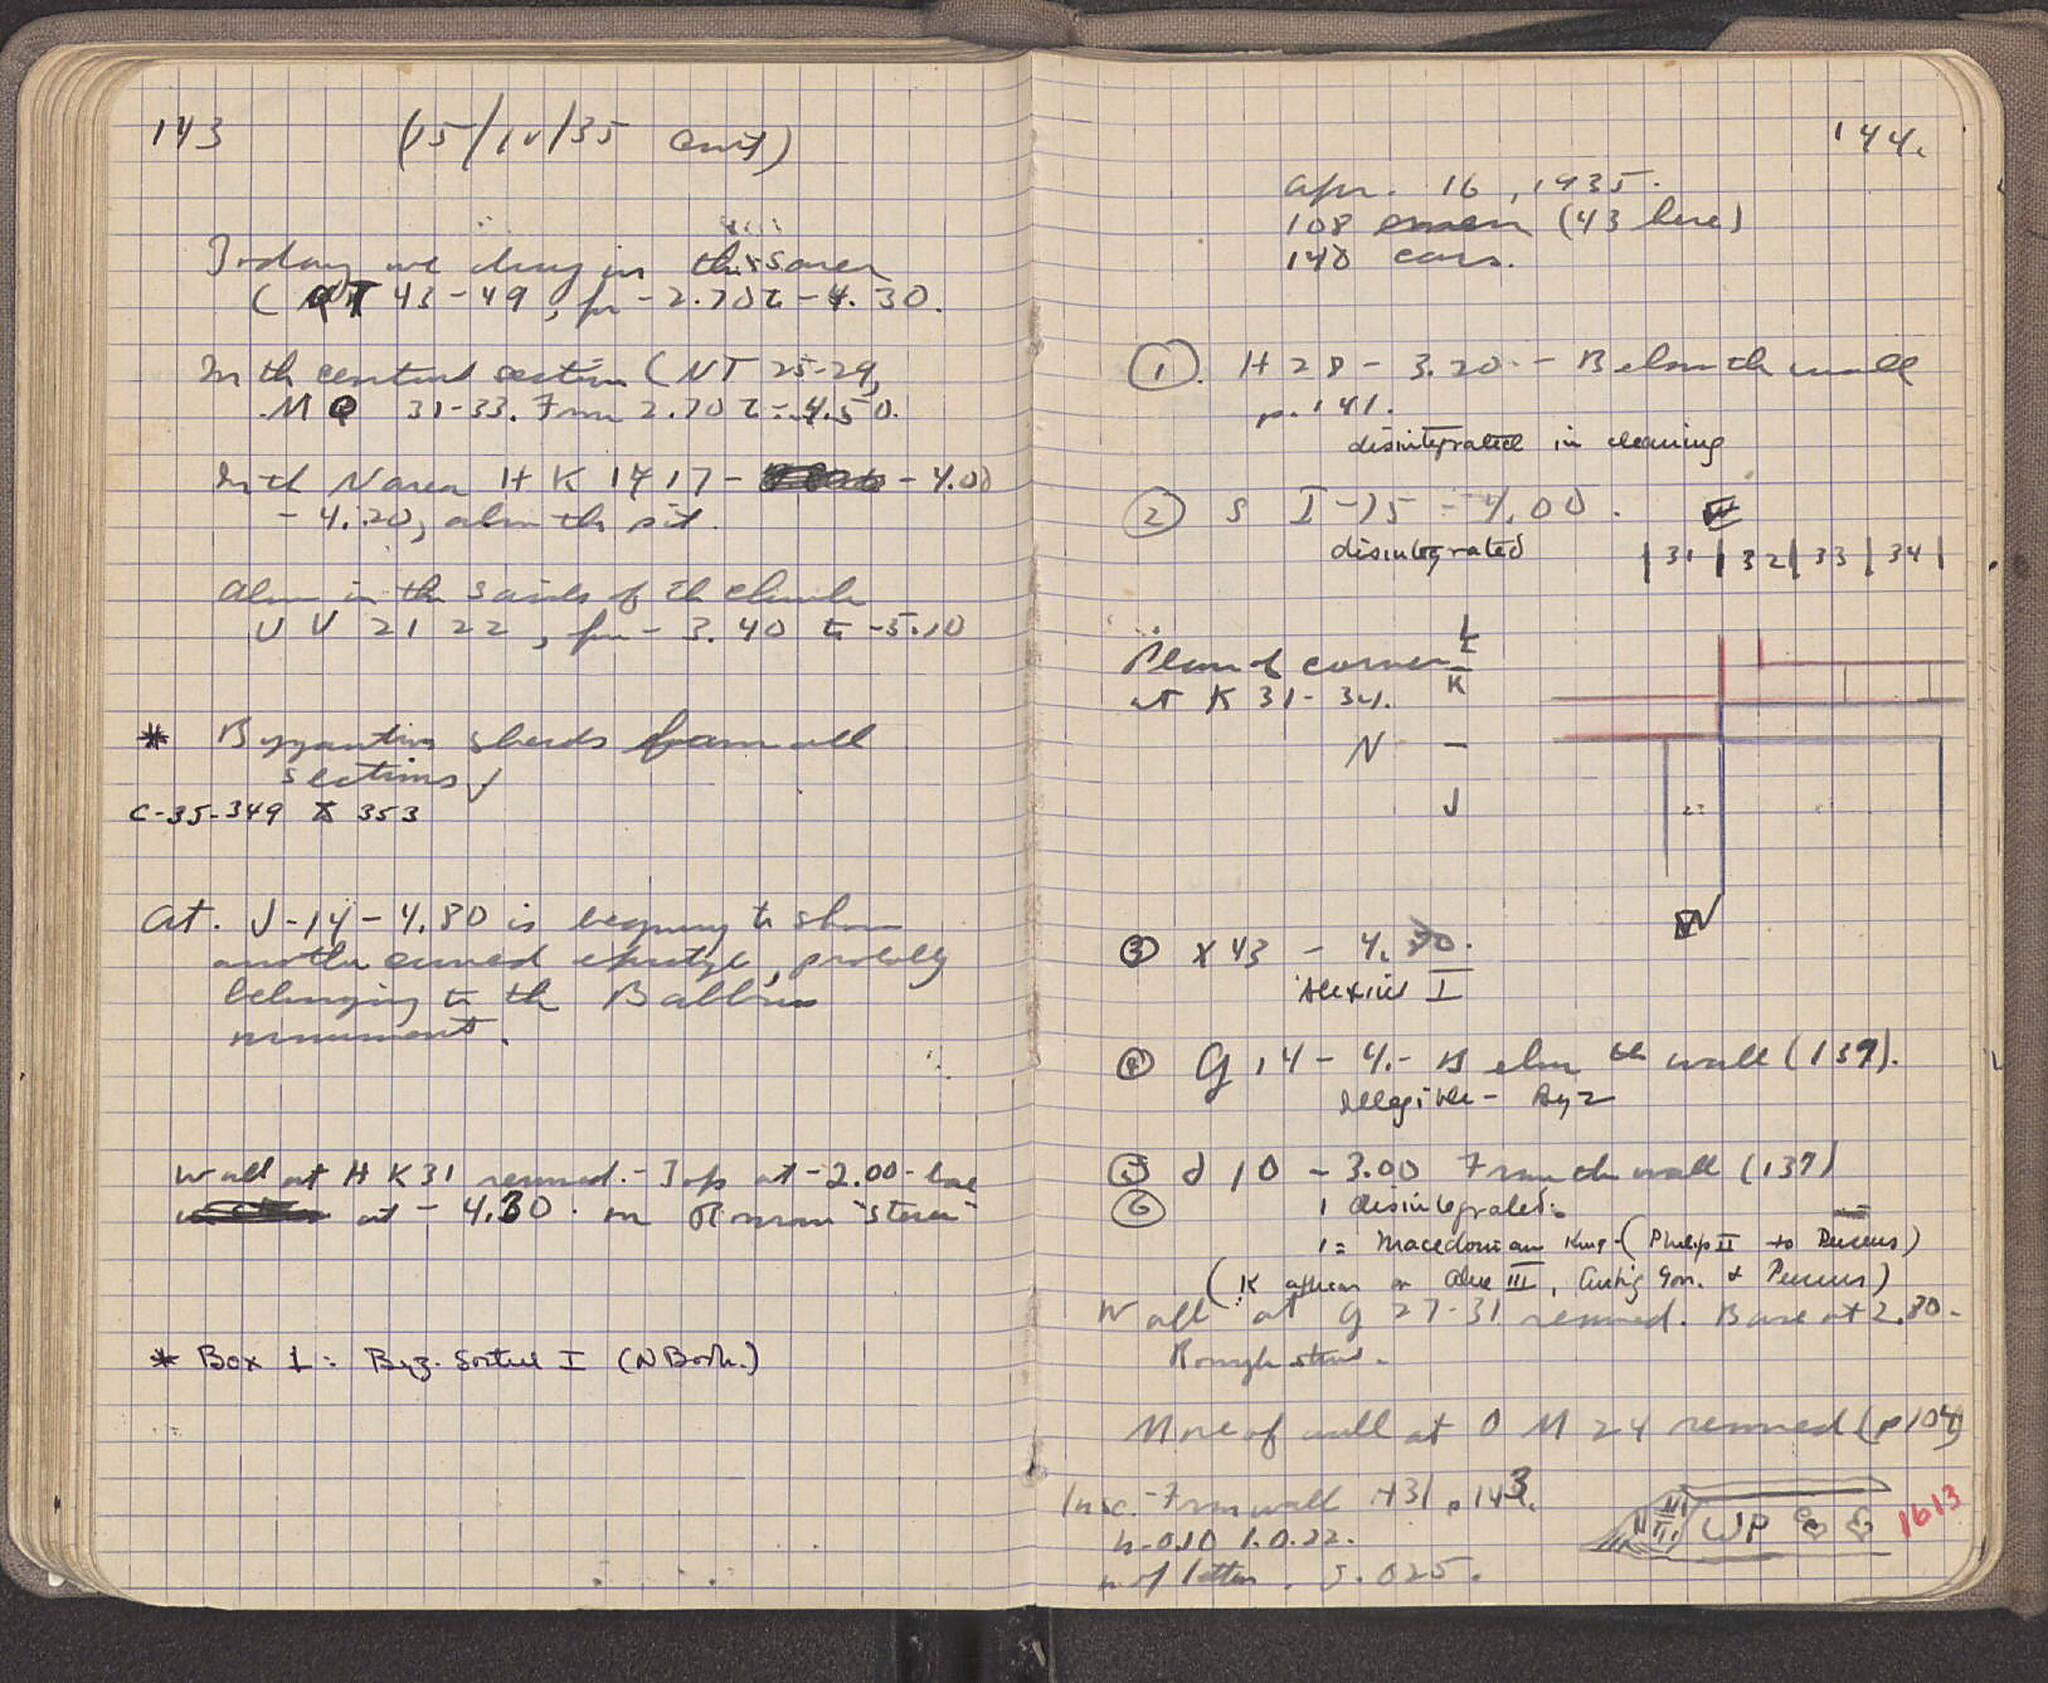 143 (15/IV/35 cont)
Today we dug in the S area
(QT 43-49, fr -2.70 to -4.30.
In th central section (NT 25-29,
MQ 31-33. From 2.70 to -4.50.
In th N area HK 14 17 - -4.00
-4.20,
Also in the S aisle of th church
UV 21 22, fr - 3.40 to -5.10
* Byzantine sherds from all
sections
C-35-349 353
At. J-14-4.80 is begining to show
another curved , probably
belonging to th Babbius
monument.
Wall at HK31 removed. - Top at -2.00 - base
at -4.30. on Roman
* Box 1: Byz. Sorted I (N Book.)
144.
Apr. 16, 1935.
108 men (43 here)
140 cars.
① H 28 - 3.20 - Below th wall
p. 141.
disintegrated in cleaning
② S I-15 - 4.00.
disintegrated
|31|32|33|34|
Plan of corner
at K 31-34.
L
K
N
J
③ X 43 - 4.
Alexius I
④ G 14 - 4.- Below th wall (139).
illegible - Byz
⑤ d 10 - 3.00 From th wall (137)
⑥ 1 disintegrated.
1 = Macedonian King - (Philip II to Perseus)
(K appears on Alex III, Antig Gon. & Perseus)
Wall at G 27-31 removed. Base at 2.80-
Rough
More of wall at O M 24 removed (p 104)
Insc. - From wall H31 p. 143.
h-0.10 l. 0.22.
h of letters .
WP
1613